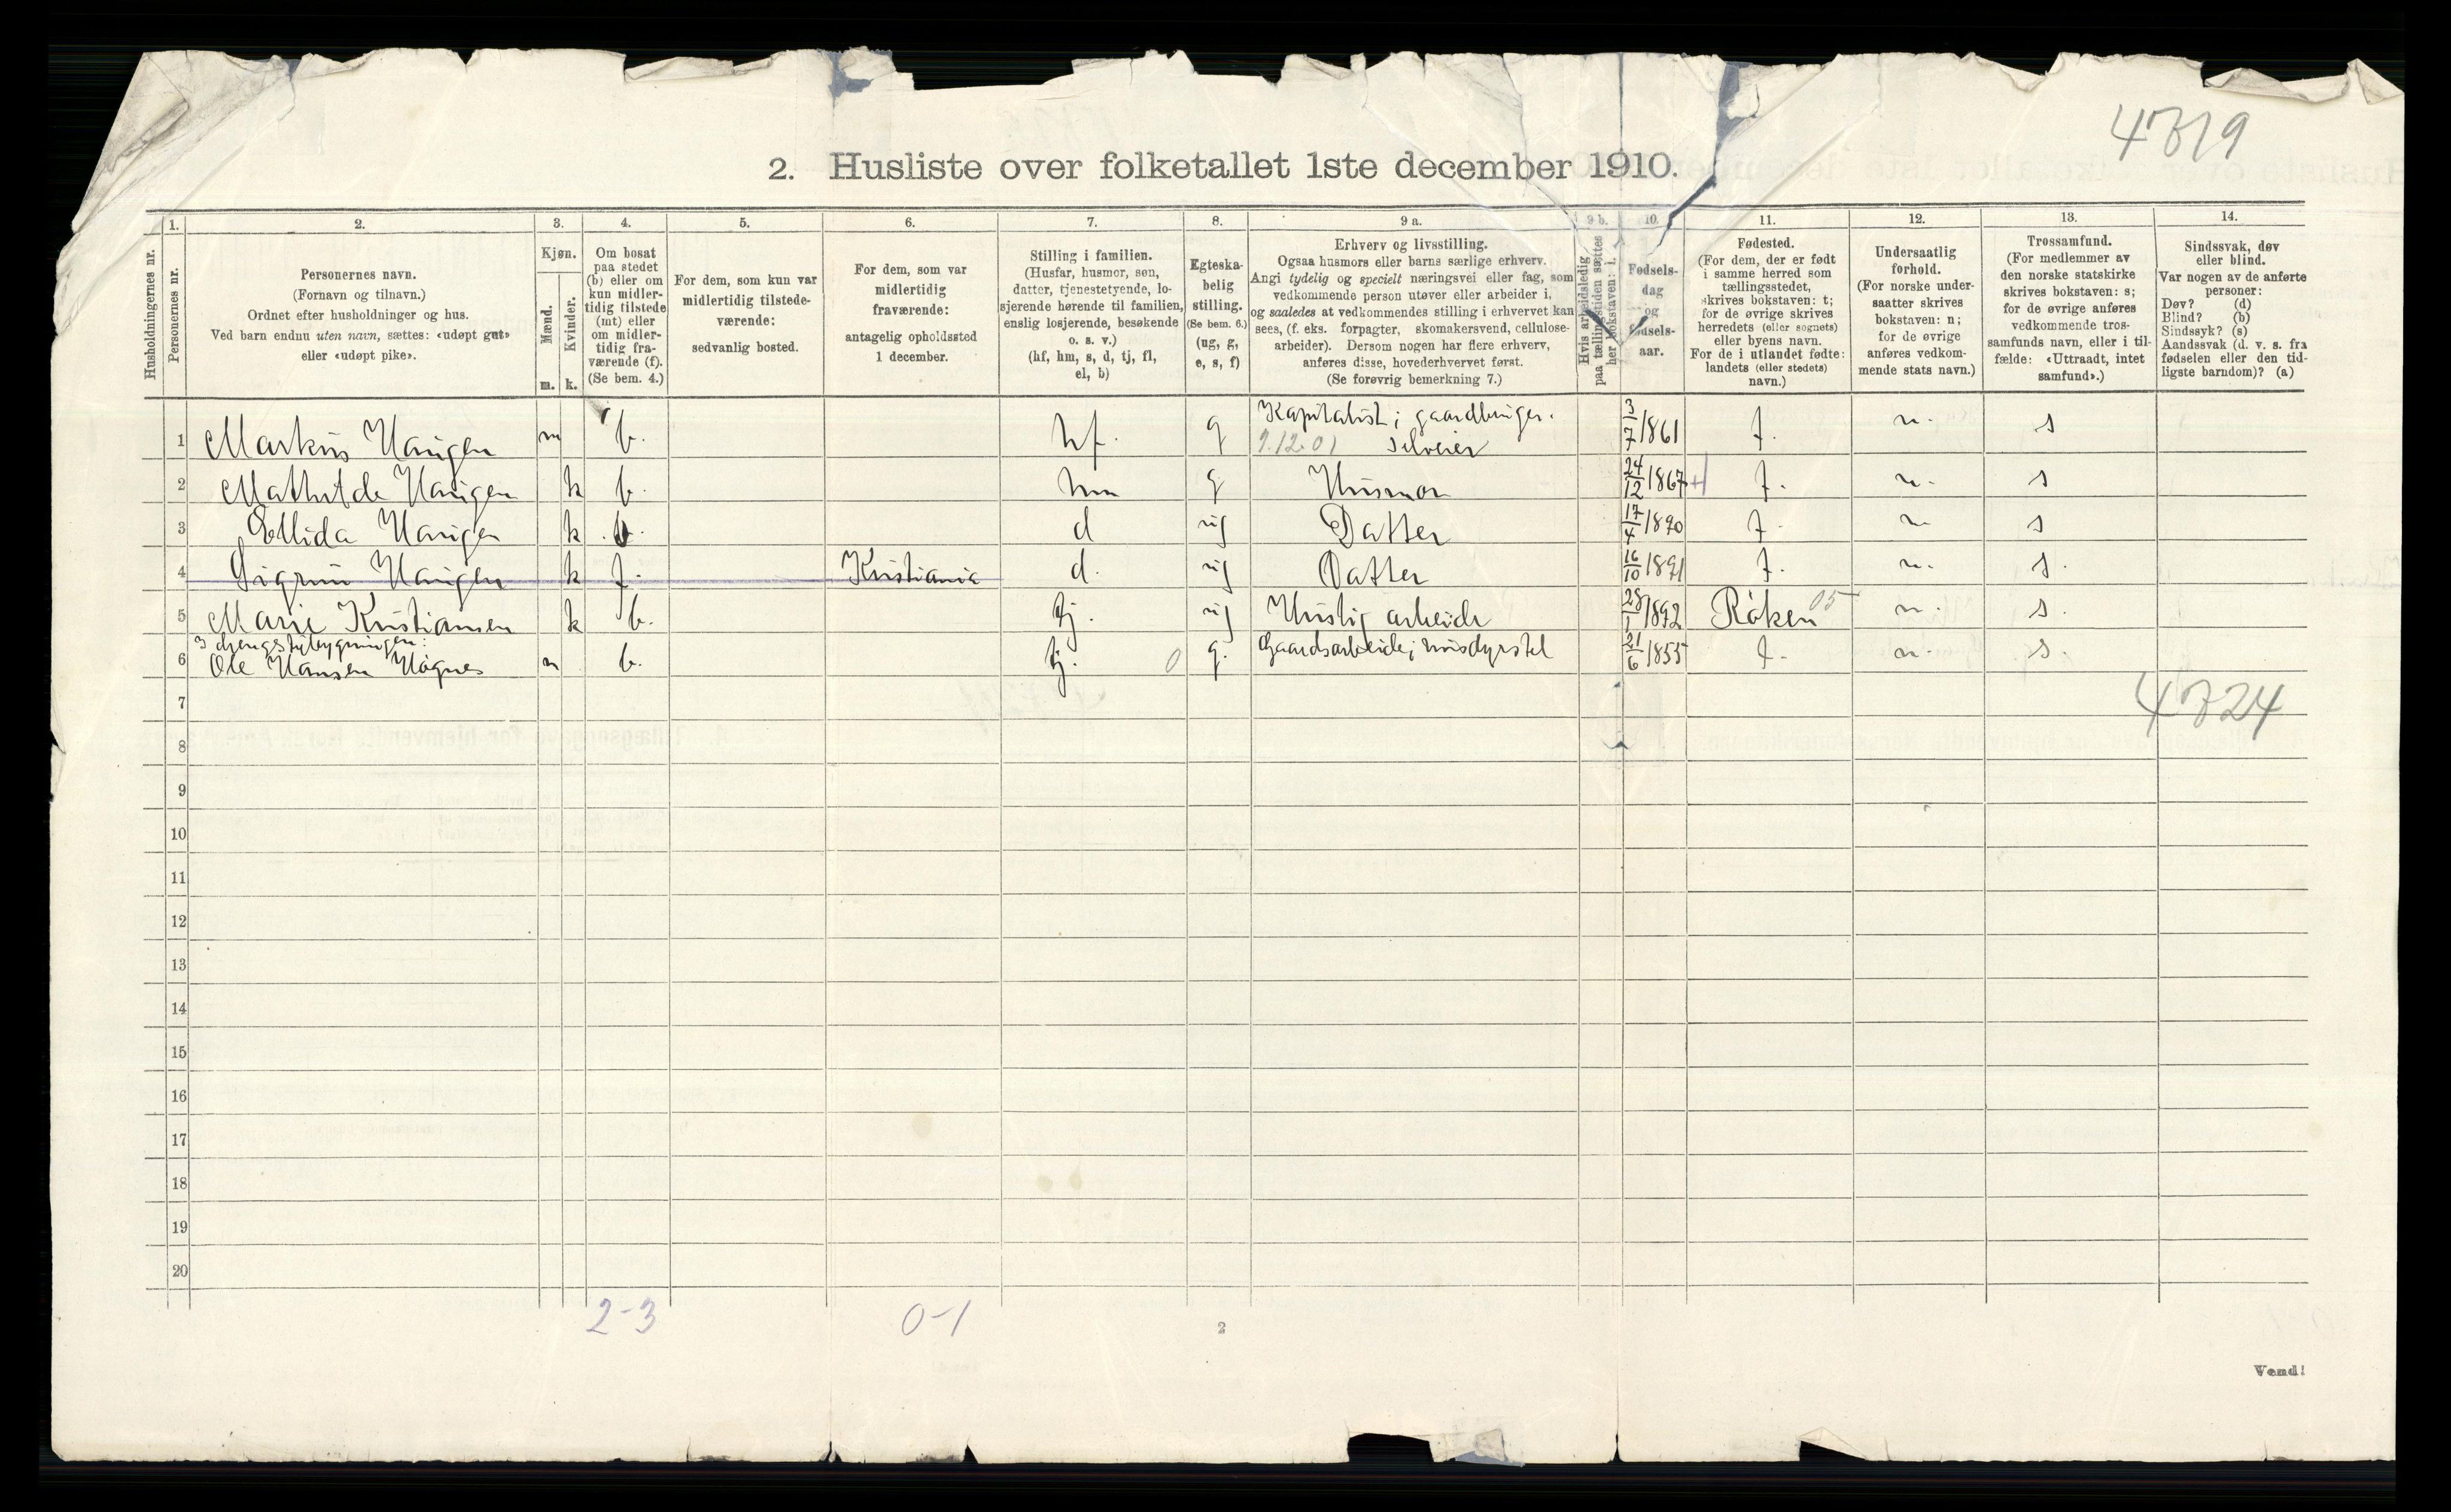 4719
2. Husliste over folketallet 1ste december 1910.
Husholdningernes nr.
1.
Personernes nr.
2.
Personernes navn.
(Fornavn og tilnavn.)
Ordnet efter husholdninger og hus.
Ved barn endnu uten navn, sættes: «udøpt gut»
eller «udøpt pike».
3.
Kjøn.
Mænd.
Kvinder.
m. k.
4.
Om bosat
paa stedet
(b) eller om
kun midler-
tidig tilstede
(mt) eller
om midler-
tidig fra-
værende (f).
(Se bem. 4.)
5.
For dem, som kun var
midlertidig tilstede-
værende:
sedvanlig bosted.
6.
For dem, som var
midlertidig
fraværende:
antagelig opholdssted
1 december.
7.
Stilling i familien.
(Husfar, husmor, søn,
datter, tjenestetyende, lo-
sjerende hørende til familien,
enslig losjerende, besøkende
o. s. v.)
(hf, hm, s, d, tj, fl,
el, b)
8.
Egteska-
belig
stilling.
(Se bem. 6.)
(ug, g,
e, s, f)
9 a.
Erhverv og livsstilling.
Ogsaa husmors eller barns særlige erhverv.
Angi tydelig og specielt næringsvei eller fag, som
vedkommende person utøver eller arbeider i,
og saaledes at vedkommendes stilling i erhvervet kan
sees, (f. eks. forpagter, skomakersvend, cellulose-
arbeider). Dersom nogen har flere erhverv,
anføres disse, hovederhvervet først.
(Se forøvrig bemerkning 7.)
9 b.
Hvis arbeidsledig
paa tællingstiden sættes
her bokstaven: l.
10.
Fødsels-
dag
og
fødsels-
aar.
11.
Fødested.
(For dem, der er født
i samme herred som
tællingsstedet,
skrives bokstaven: t;
for de øvrige skrives
herredets (eller sognets)
eller byens navn.
For de i utlandet fødte:
landets (eller stedets)
navn.)
12.
Undersaatlig
forhold.
(For norske under-
saatter skrives
bokstaven: n;
for de øvrige
anføres vedkom-
mende stats navn.)
13.
Trossamfund.
(For medlemmer av
den norske statskirke
skrives bokstaven: s;
for de øvrige anføres
vedkommende tros-
samfunds navn, eller i til-
fælde: «Uttraadt, intet
samfund».)
14.
Sindssvak, døv
eller blind.
Var nogen av de anførte
personer:
Døv? (d)
Blind? (b)
Sindssyk? (s)
Aandssvak (d. v. s. fra
fødselen eller den tid-
ligste barndom)? (a)
1 Markus Haugen m b. hf. g Kapitalist; gaardbruger. 3/7 1861 t. n. s
9.12.01 Selveier
2 Mathilde Haugen k b. hm g Husmor 24/12 1867 t. n. s
3 Ellida Haugen k b. d ug Datter 17/4 1890 t. n s
4 Sigrun Haugen k f. Kristiania d. ug Datter 16/10 1891 t. n. s.
5 Marie Kristiansen k b. tj. ug Huslig arbeide 28/1 1892 Röken 05 n. s.
I drengstubygningen:
6 Ole Hansen Høgnes m b. tj. 0 g. Gaardsarbeide; husdyrstel 21/6 1855 t. n. s.
4724
7
8
9
10
11
12
13
14
15
16
17
18
19
20
2-3 0-1
2
Vend!